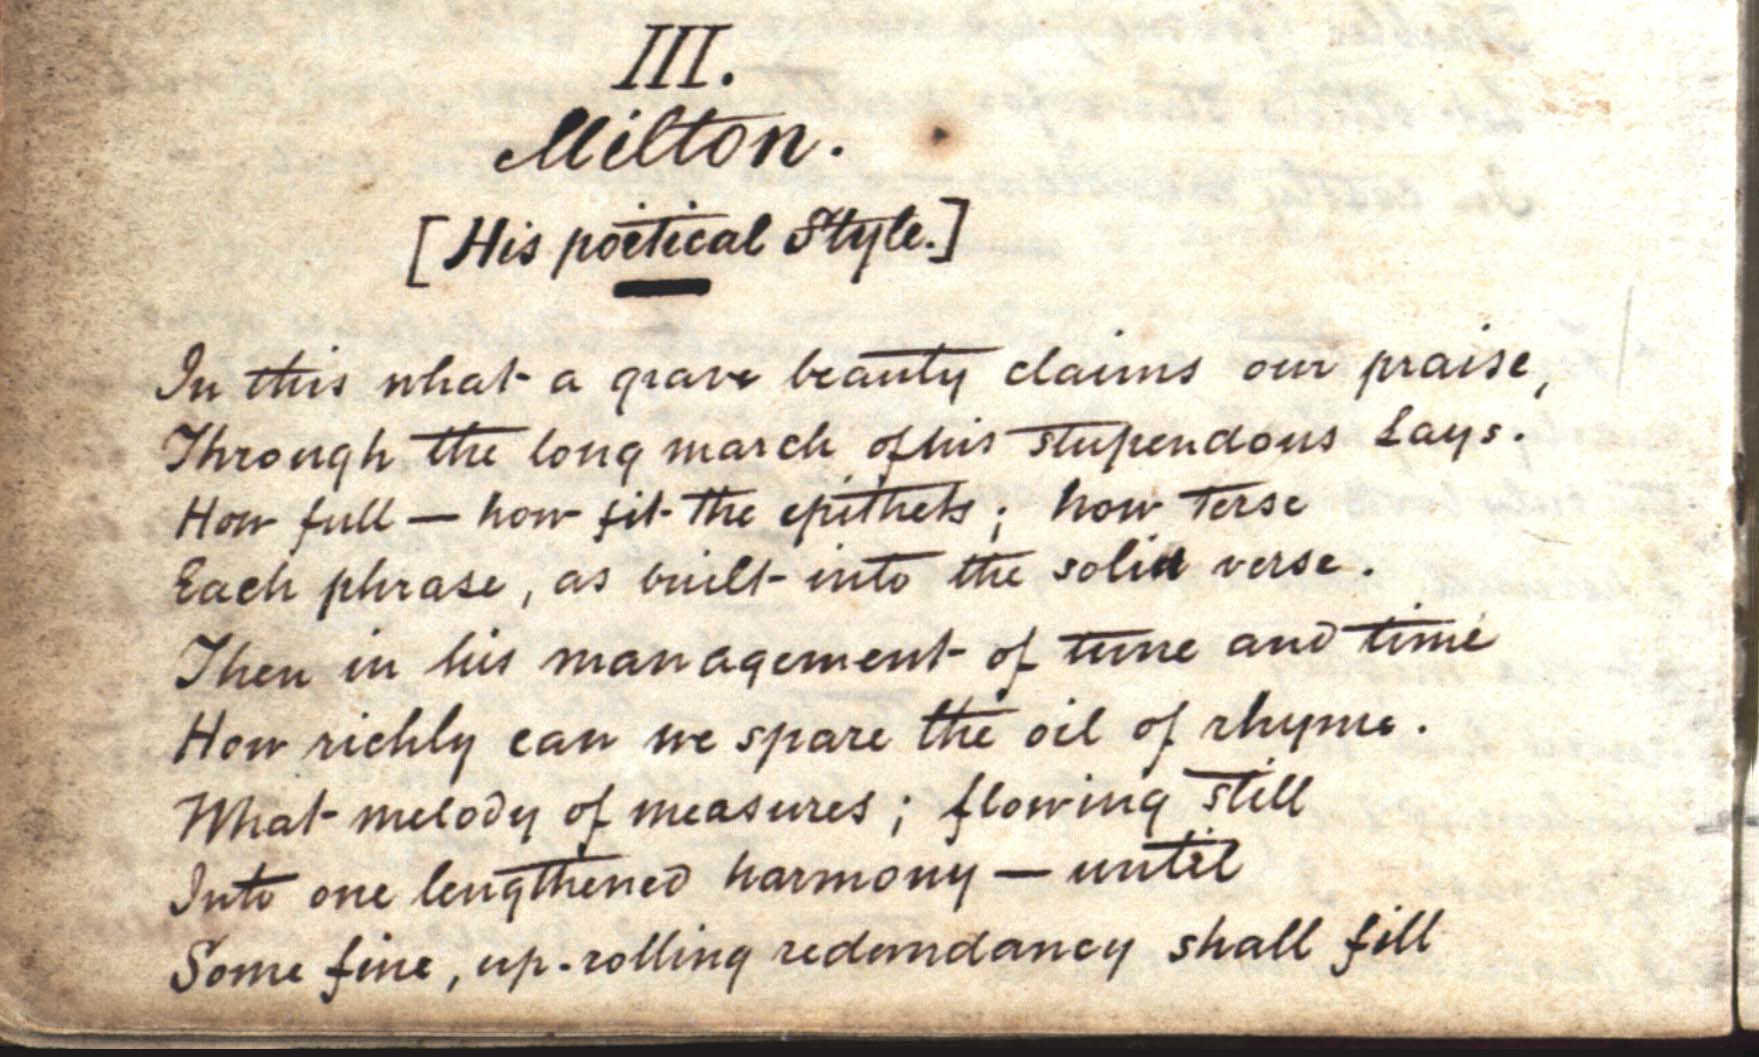 III.
Milton.
[His poëtical Style.]
In this what a grave beauty claims our praise,
Through the long march of his stupendous Lays.
How full — how fit the epithets; how terse
Each phrase, as built into the solid verse.
Then in his management of tune and time
How richly can we spare the oil of rhyme.
What melody of measures; flowing still
Into one lengthened harmony — until
Some fine, up-rolling redundancy shall fill